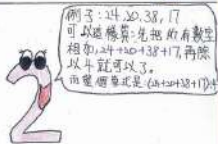 例子:24.20.38,17
可以這樣算:先把所有數字
相加,24+20+38+17,再除
以4就可以了。
而整個算式是:(24+20+38+17)÷4